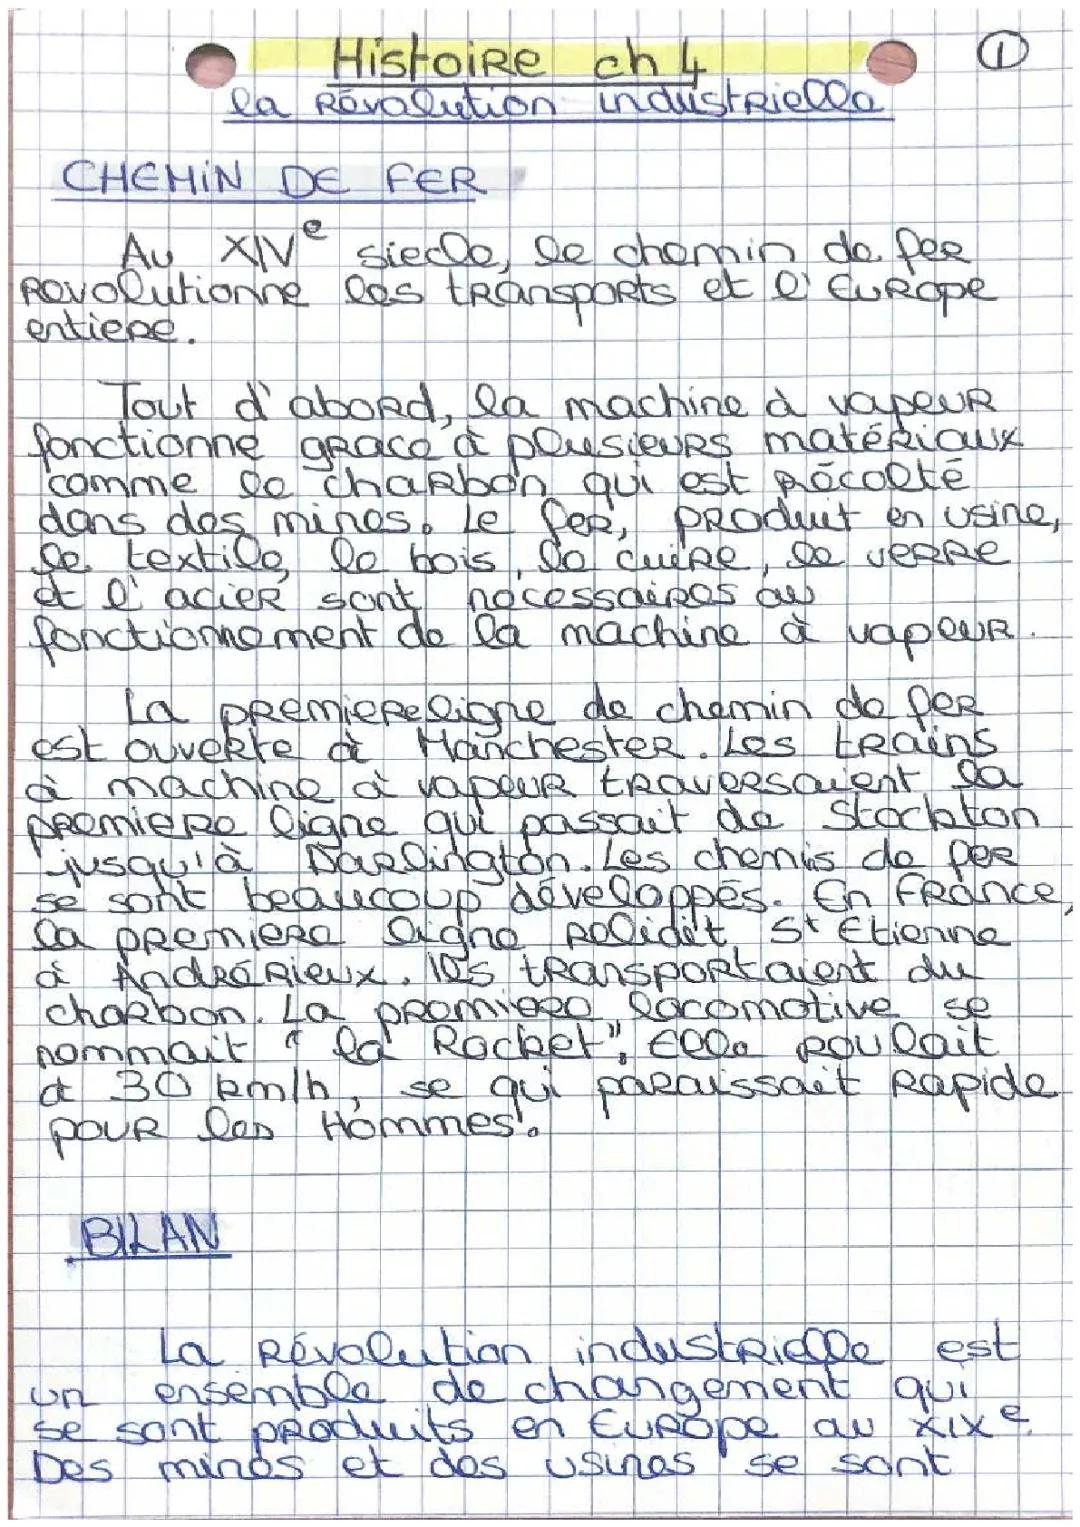 Histoire ch 4
①
la Révolution industrielle
CHEMIN DE FER
Au XIVe siecle, le chemin de fer
Révolutionne les transports et l'Europe
entiere.
Tout d'abord, la machine à vapeur
fonctionne grace à plusieurs matériaux
comme le charbon qui est récolté
dans des mines. Le fer, produit en usine,
le textile, le bois, le cuire, le verre
et l'acier sont nécessaires au
fonctionnement de la machine à vapeur.
La premiere ligne de chemin de fer
est ouverte à Manchester. Les trains
à machine à vapeur traversaient la
premiere ligne qui passait de Stockton
jusqu'à Darlington. Les chemis de fer
se sont beaucoup développés. En France,
la premiere ligne relidit St Etienne
à Andrérieux. Ils transportaient du
charbon. La premiere locomotive se
nommait "la Rocket", Elle roulait
à 30 km/h, se qui paraissait rapide
pour les Hommes.
BILAN
La Révolution industrielle est
un ensemble de changement qui
se sont produits en Europe au XIXe.
Des mines et des usines se sont